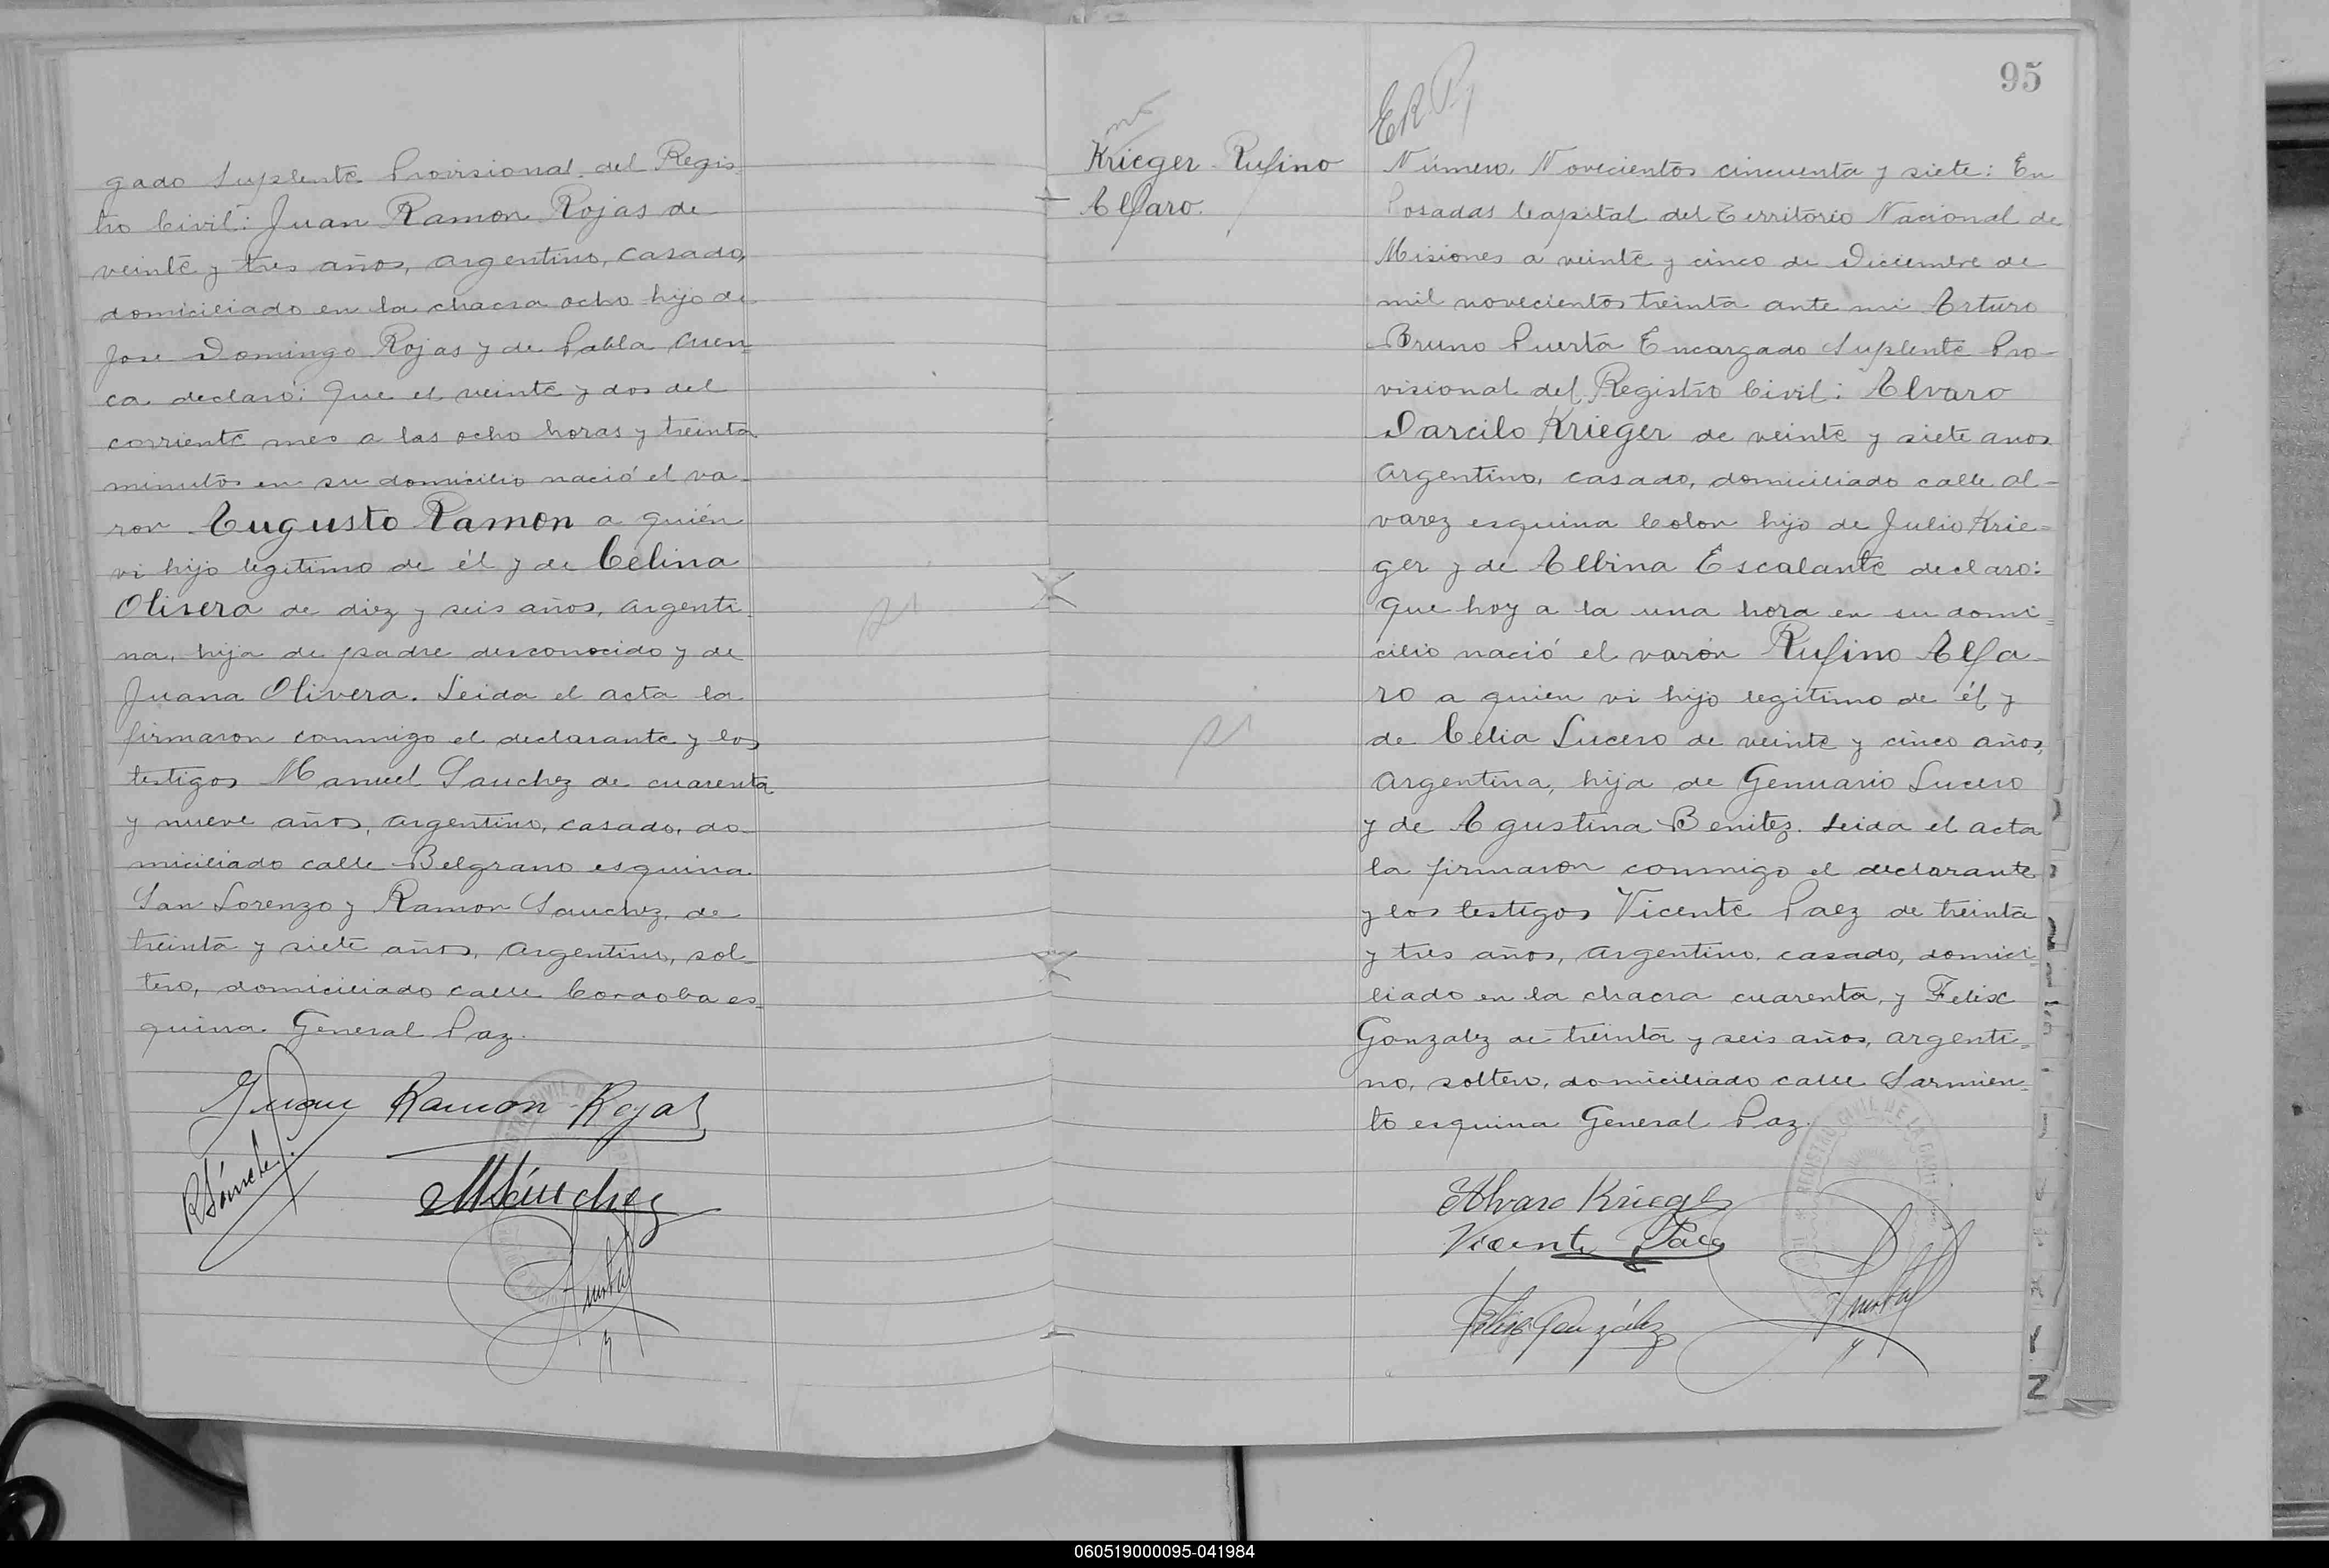 gado Suplente Provisional del Regis-
tro Civil: Juan Ramon Rojas de
veinte y tres años, argentino, casado,
domiciliado en la chacra ocho hijo de
Jose Domingo Rojas y de Pabla Cuen-
ca declaró: Que el veinte y dos del
corriente mes a las ocho horas y treinta
minutos en su domicilio nació el va-
ron Augusto Ramon a quién
vi hijo legitimo de él y de Celina
Olivera de diez y seis años, argenti-
na, hija de padre desconocido y de
Juana Olivera. Leida el acta la
firmaron conmigo el declarante y los
testigos Manuel Sanchez de cuarenta
y nueve años, argentino, casado, do-
miciliado calle Belgrano esquina
San Lorenzo y Ramon Sanchez de
treinta y siete años, argentino, sol-
tero, domiciliado calle Cordoba es-
quina General Paz.
Juan Ramon Rojas
RSánchez
MSánchez
95
Krieger Rufino
Alfaro.
Número Novecientos cincuenta y siete: En
Posadas Capital del Territorio Nacional de
Misiones a veinte y cinco de Diciembre de
mil novecientos treinta ante mi Arturo
Bruno Puerta Encargado Suplente Pro-
visional del Registro Civil: Alvaro
Darcilo Krieger de veinte y siete anos
argentino, casado, domiciliado calle Al-
varez esquina Colon hijo de Julio Krie-
ger y de Albina Escalante declaro:
Que hoy a la una hora en su domi-
cilio nació el varón Rufino Alfa-
ro a quien vi hijo legitimo de él y
de Celia Lucero de veinte y cinco años,
argentina, hija de Genuario Lucero
y de Agustina Benitez. Leida el acta
la firmaron conmigo el declarante
y los testigos Vicente Paez de treinta
y tres años, argentino, casado, domici-
liado en la chacra cuarenta, y Felix
Gonzalez de treinta y seis años, argenti-
no, soltero, domiciliado calle Sarmien-
to esquina General Paz.
Alvaro Krieger
Vicente Paez
Felix González
060519000095-041984